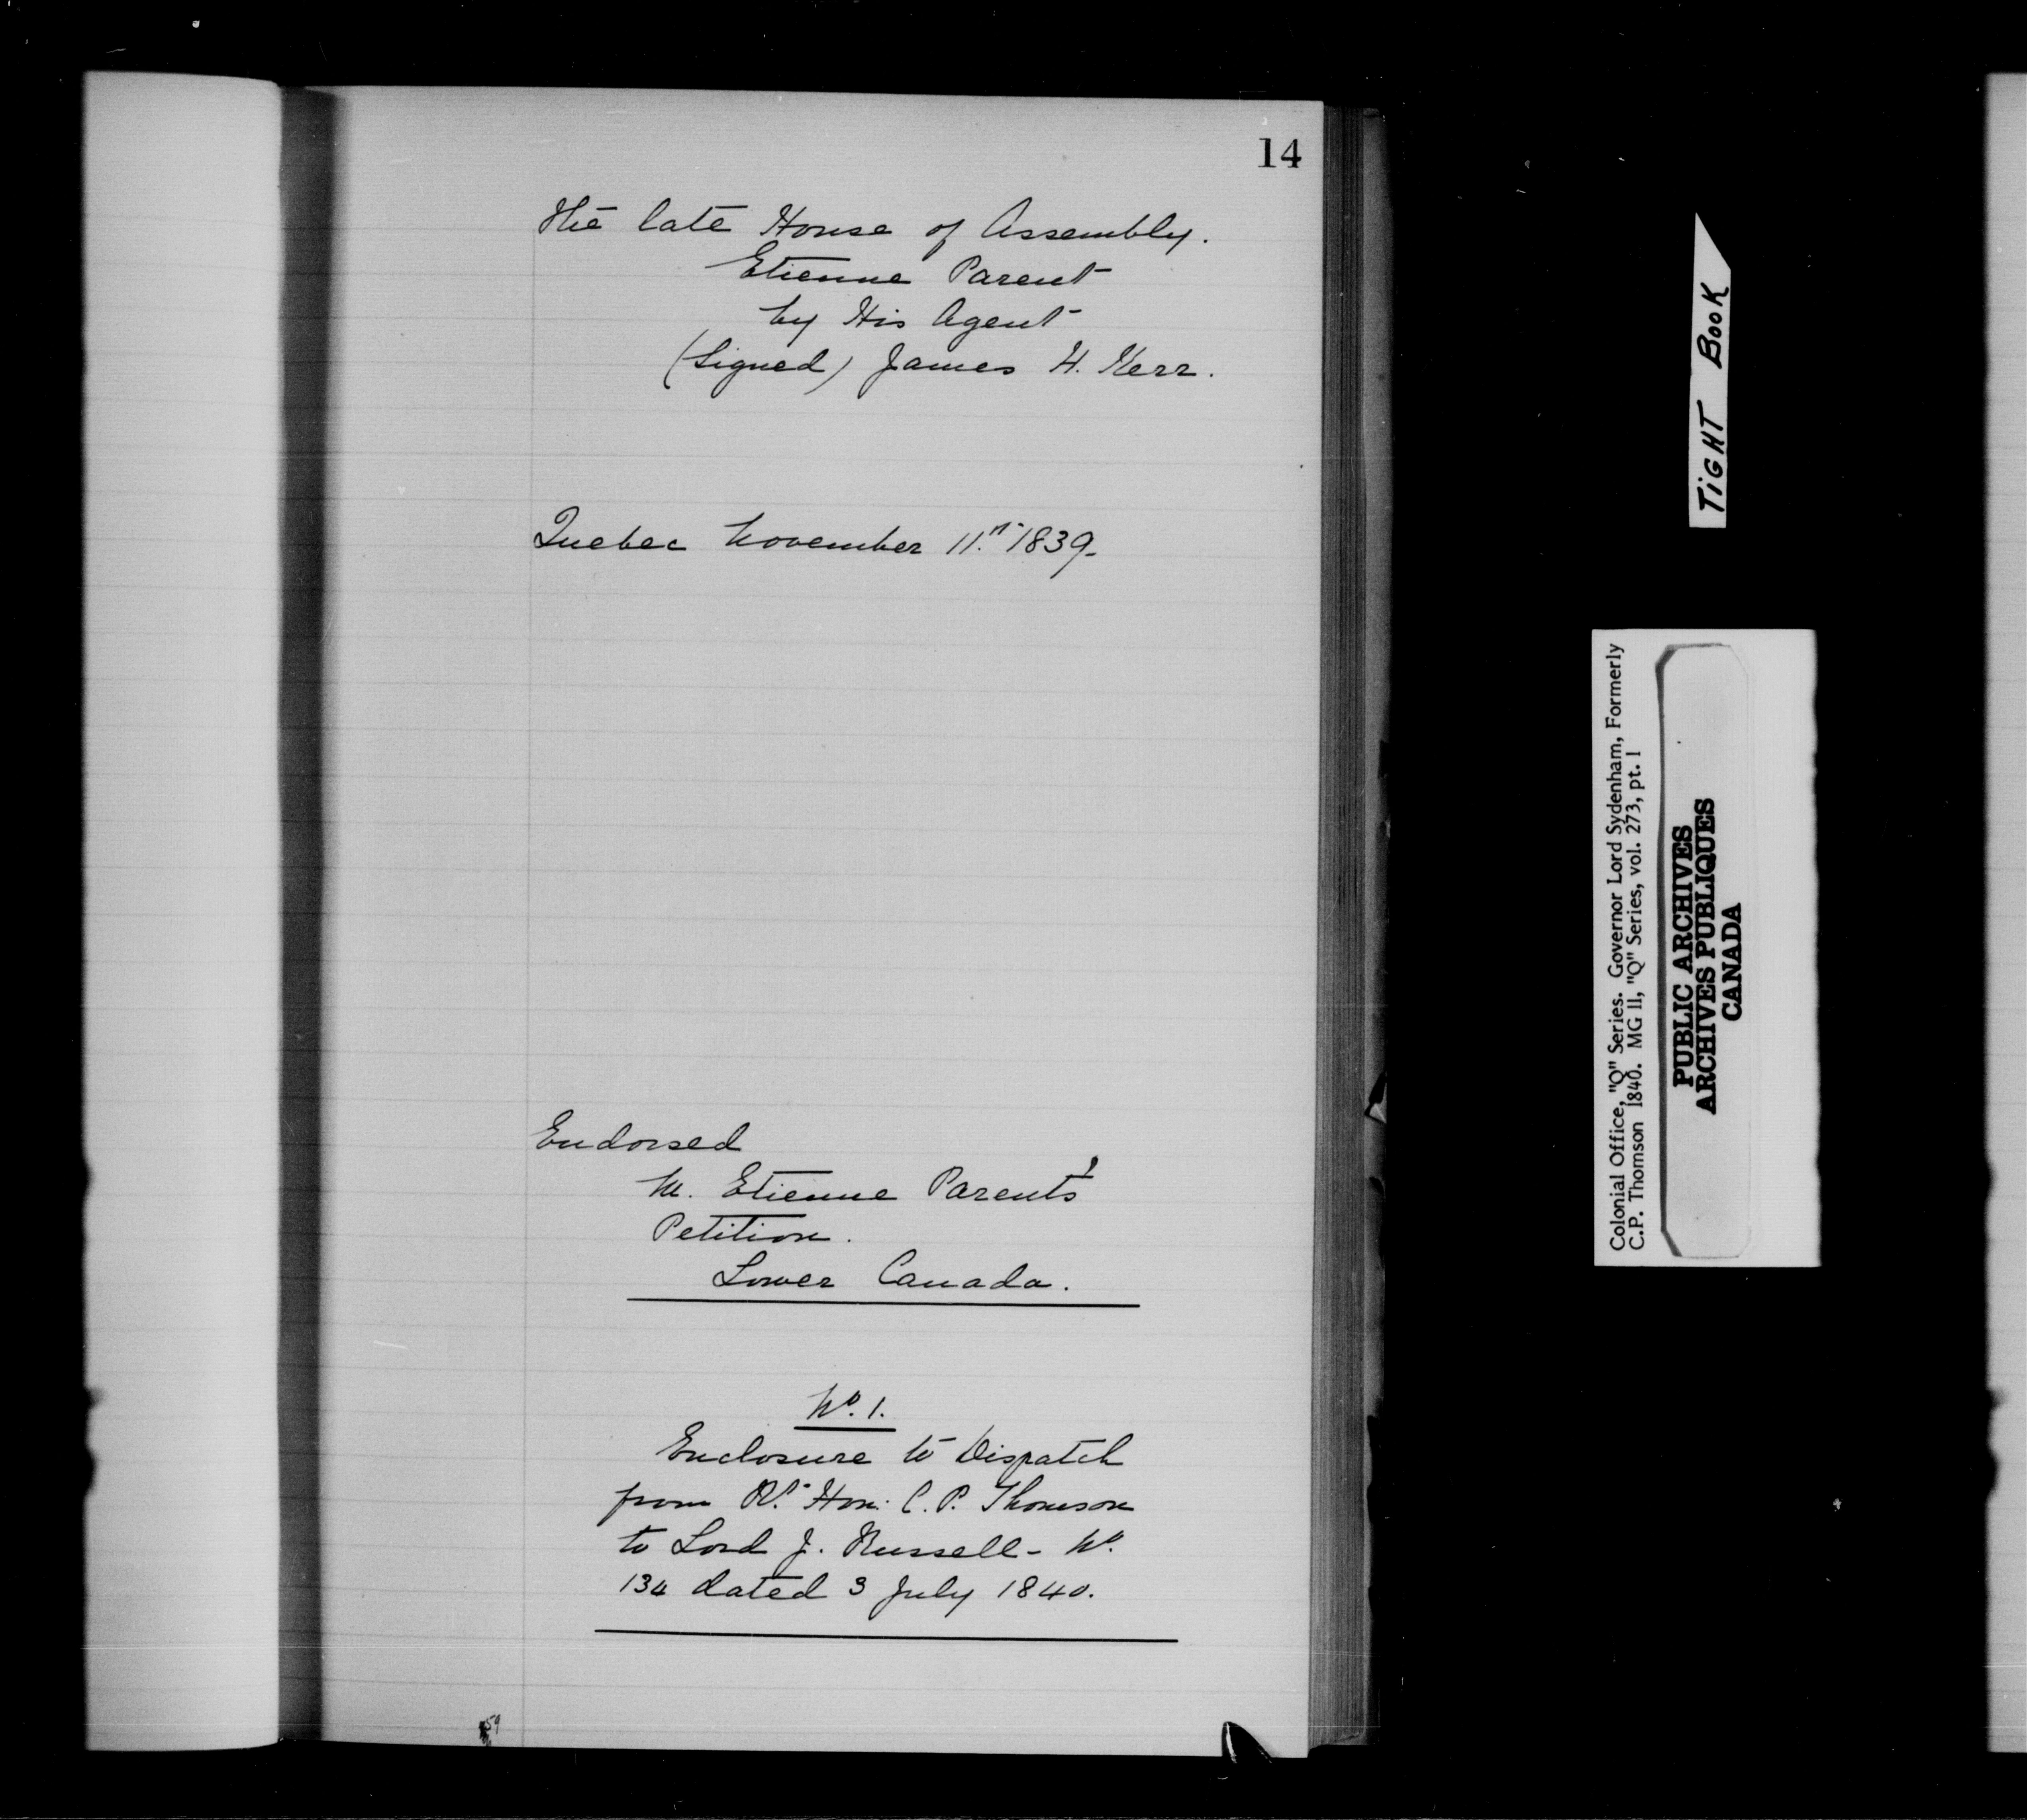 14
the late House of Assembly.
Etienne Parent
by His Agent
(Signed) James H. Kerr.
Quebec November 11.th 1839.
Endorsed
M. Etienne Parent's
Petition.
Lower Canada.
No. 1.
Enclosure to Dispatch
from Rt. Hon: C. P. Thomson
to Lord J. Russell - No.
134 dated 3 July 1840.
59
TIGHT BOOK
Colonial Office, "Q" Series. Governor Lord Sydenham, Formerly
C.P. Thomson 1840. MG 11, "Q" Series, vol. 273, pt. 1
PUBLIC ARCHIVES
ARCHIVES PUBLIQUES
CANADA